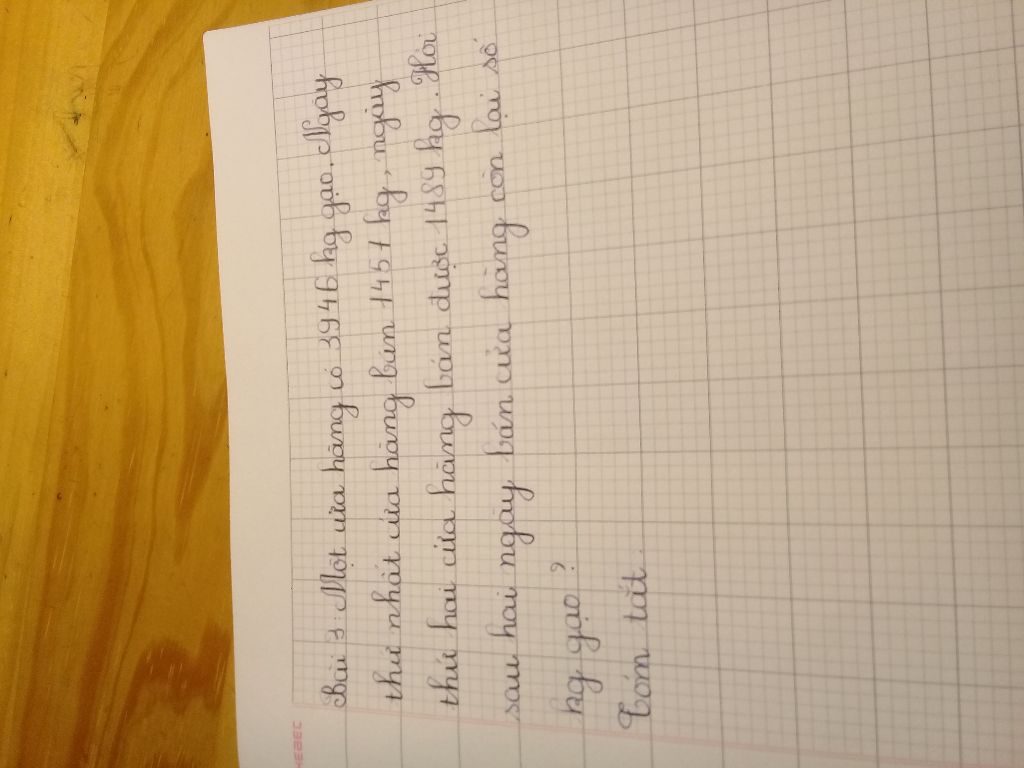 Bài 3: Một cửa hàng có 3946 kg gạo. Ngày
thứ nhất cửa hàng bán 1457 kg, ngày
thứ hai cửa hàng bán được 1489 kg. Hỏi
sau hai ngày bán cửa hàng còn lại số
kg gạo?
Tóm tắt.